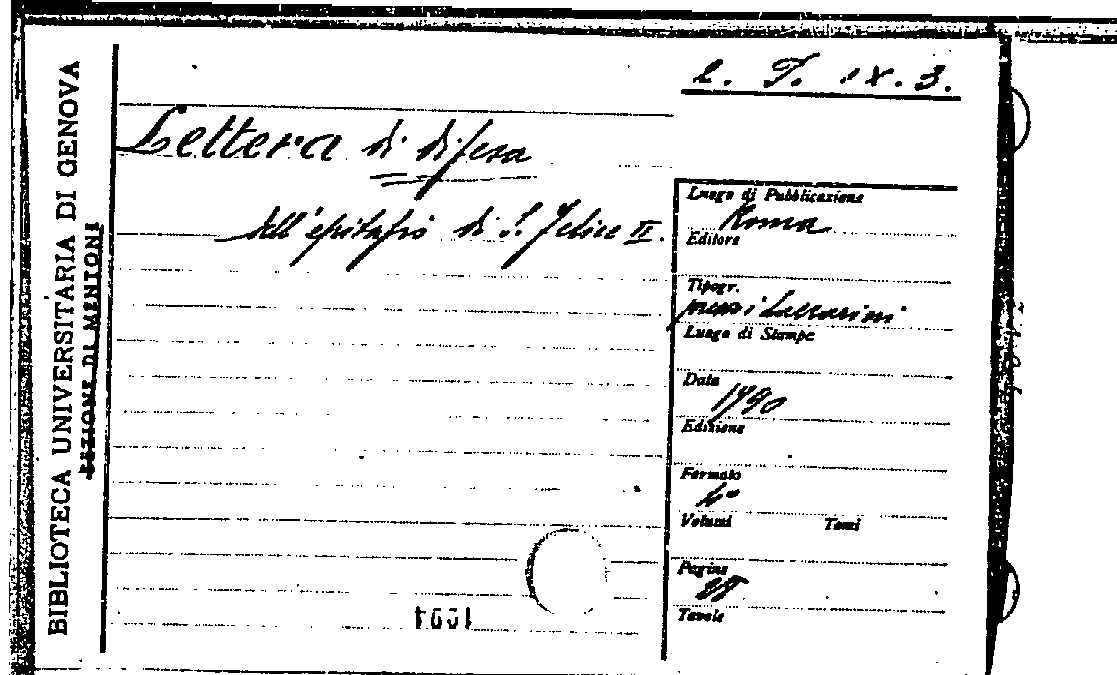 BIBLIOTECA UNIVERSITARIA DI GENOVA
SEZIONE DI MENTONI
2. T. IX. 3.
Lettera di difesa
dell'epitafio di S. Felice II.
Luogo di Pubblicazione
Roma
Editore
Tipogr.
Lazzarini
Luogo di Stampa
Data
1790
Edizione
Formato
4°
Volumi Tomi
Pagine
Tavole